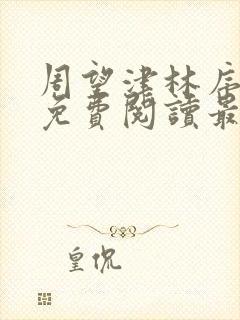 周望津林辰
免費閱讀最
皇侃